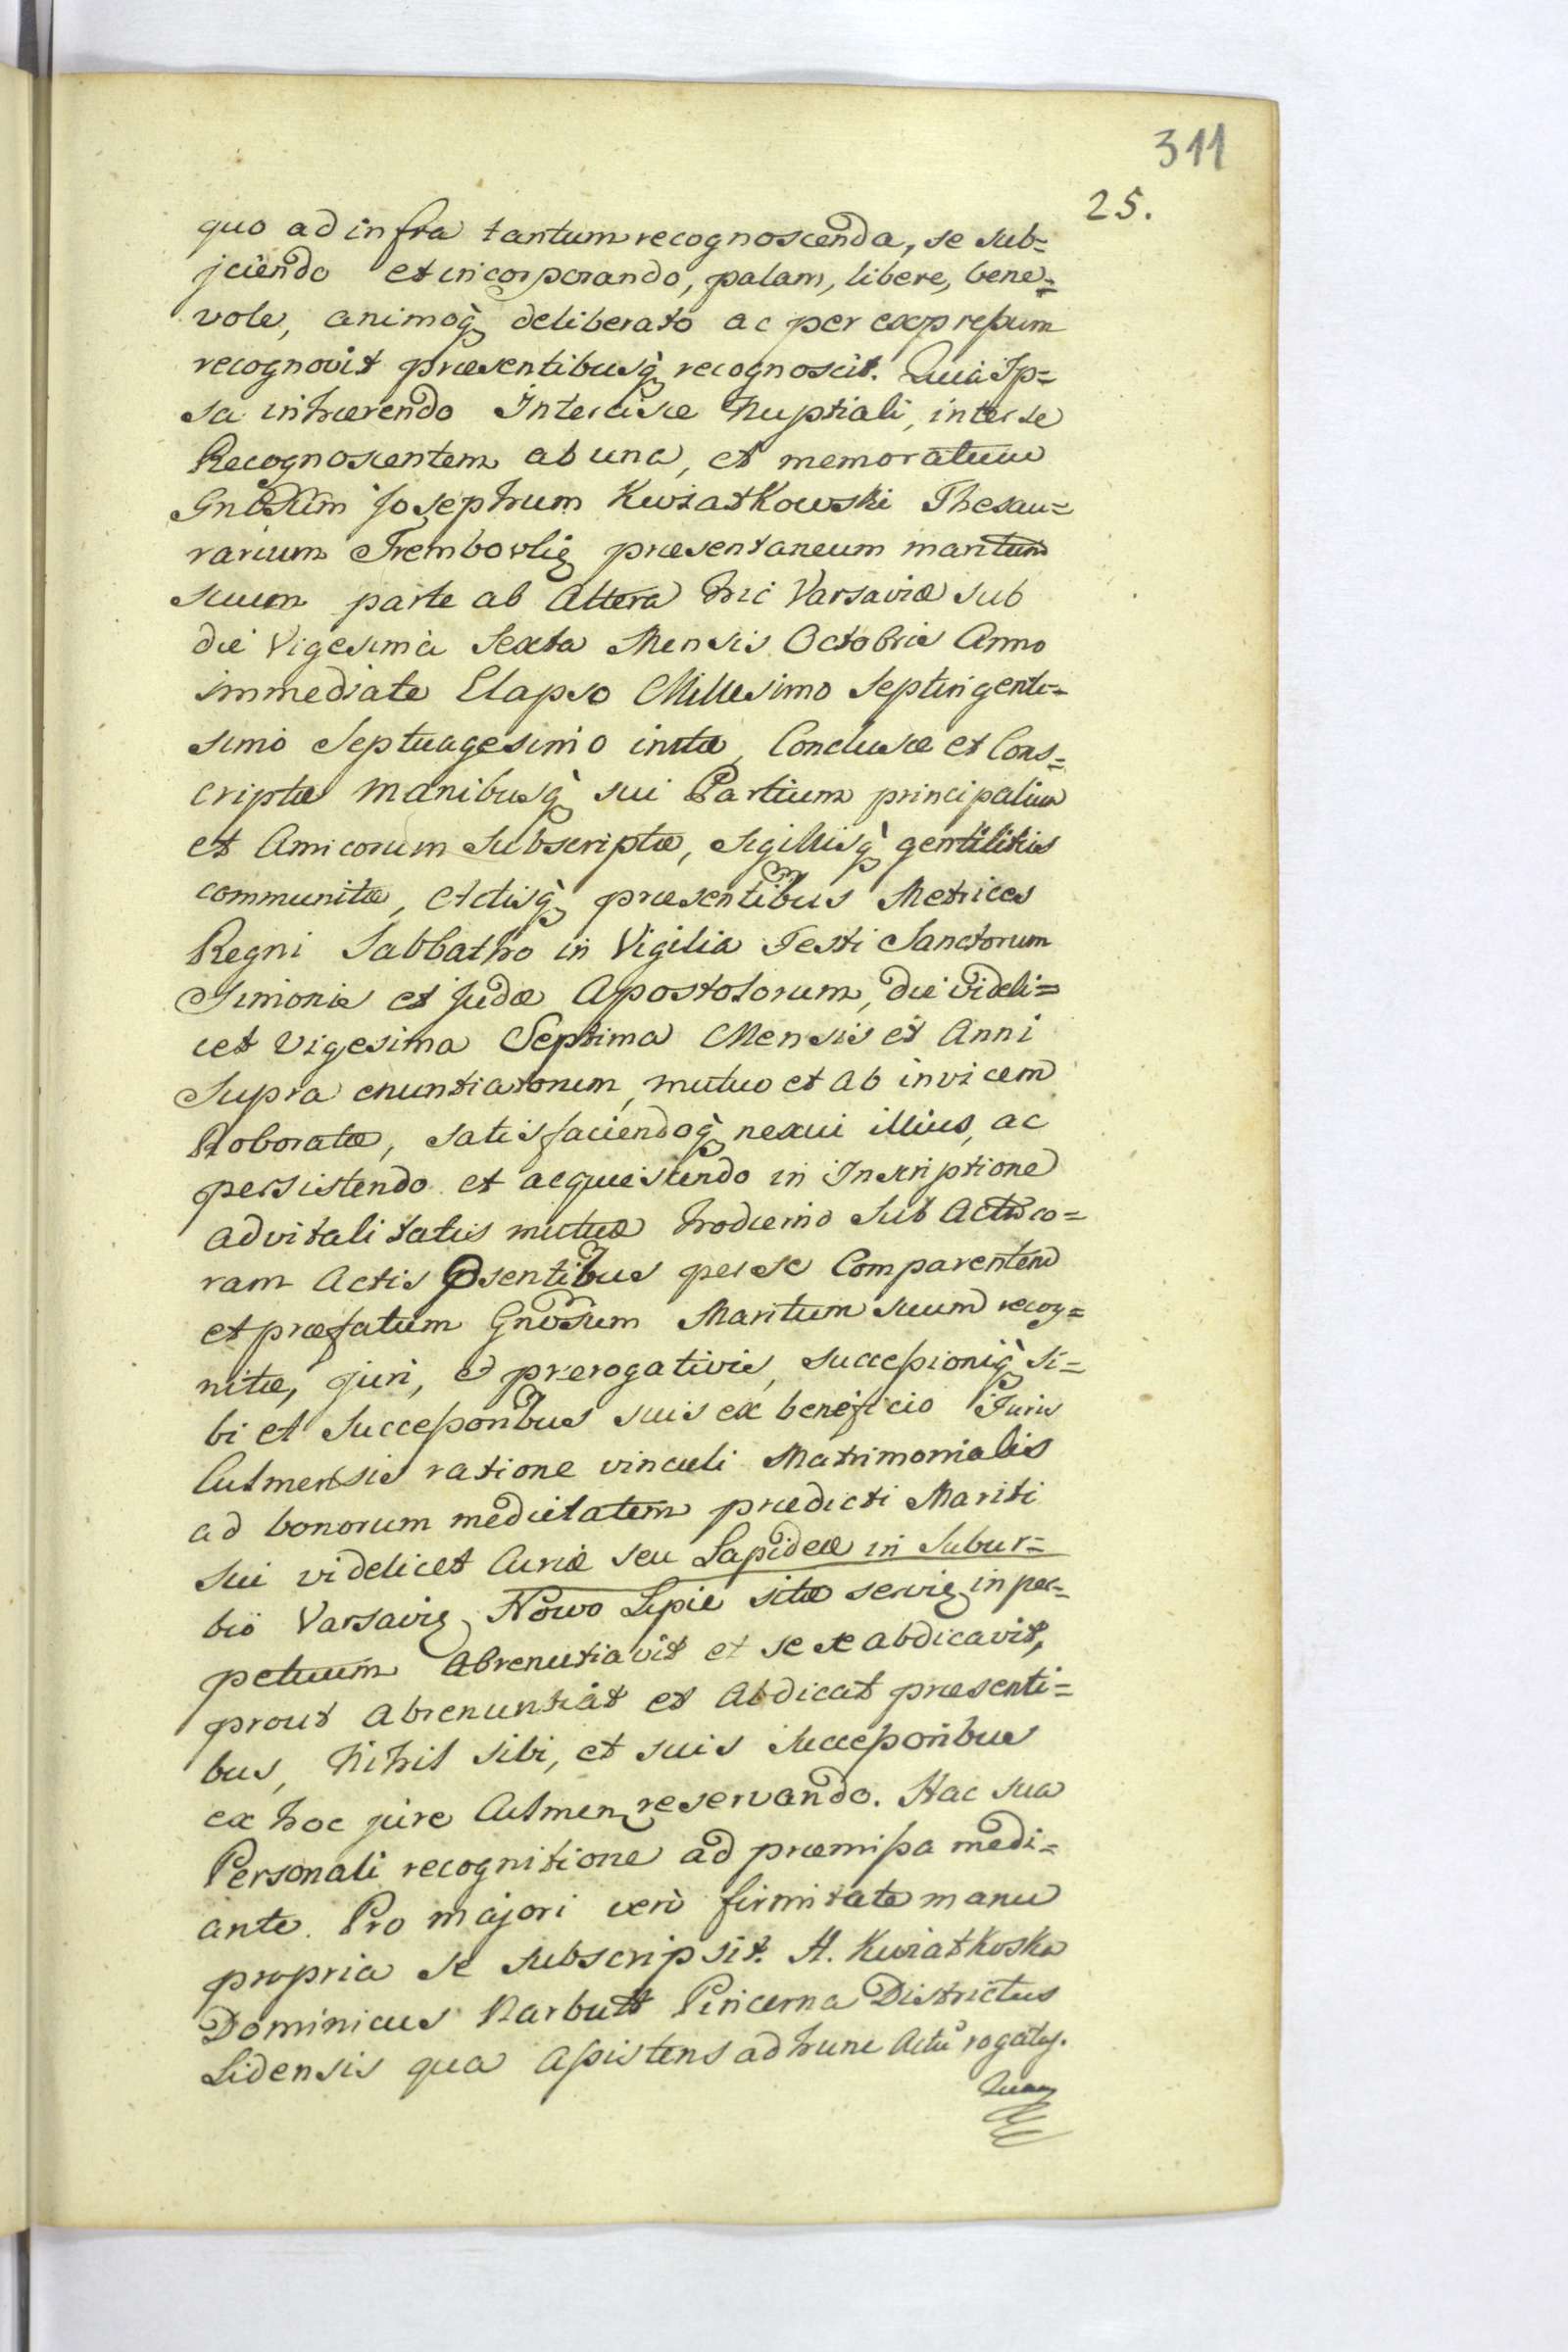 311
25.
quo ad infra tantum recognoscenda, se sub=
jciendo et incorporando, palam, libere, bene=
vole, animoq̀ deliberato ac per expreſsum
recognovit præsentibusq̀ recognoscit. Quia Ip=
sa inhærendo Intercisæ Nuptiali, inter se
Recognoscentem ab una, et memoratum
Gnosum Josephum Kwiatkowski Thesau=
rarium Trembovlię præsentaneum maritum
suum parte ab Altera hic Varsaviæ sub
die Vigesima Sexta Mensis Octobris Anno
immediate Elapso Millesimo Septingente=
simo Septuagesimo initæ, Conclusæ et Cons=
criptæ manibusq̀ sui Partium principalium
et Amicorum Subscriptæ, Sigillisq̀ gentilitiis
communitæ, Actisq̀ præsentibus Metrices
Regni Sabbatho in Vigilia Festi Sanctorum
Simonis et Judæ Apostolorum, die videli=
cet Vigesima Septima Mensis et Anni
Supra enuntiatorum, mutuo et ab invicem
Roboratæ, satisfaciendoq̀ nexui illius, ac
persistendo et acquiescendo in Inscriptione
advitalitatis mutuæ hodierno Sub Actu co=
ram Actis Psentibus per se Comparentem
et præfatum Gnosum Maritum suum recog=
nitæ, juri, & prerogativis, succeſsioniq̀ si=
bi et Succeſsoribus suis ex beneficio Juris
Culmensis ratione vinculi Matrimonialis
ad bonorum medietatem prædicti Mariti
sui videlicet Curiæ seu Lapideæ in Subur=
bio Varsavię Nowo Lipie sitæ servię in per=
petuum Abrenutiavit et se se abdicavit,
prout abrenuntiat et Abdicat præsenti=
bus, Nihil sibi, et suis Succeſsoribus
ex hoc jure Culmen reservando. Hac sua
Personali recognitione ad præmiſsa medi=
ante. Pro majori verò firmitate manu
propria se subscripsit. H. Kwiatkoska
Dominicus Narbutt Pincerna Districtus
Lidensis qua Aſsistens ad hunc Actū rogatus.